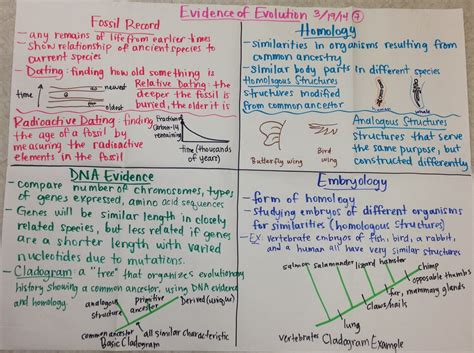 Evidence of Evolution 3/19/14 7
Fossil Record
- any remains of life from earlier times
- Show relationship of ancient species to
current species
- Dating: finding how old something is
time
newest
oldest
Relative Dating: the
deeper the fossil is
buried, the older it is
Radioactive Dating: finding
the age of a fossil by
measuring the radioactive
elements in the fossil
Fraction of
Carbon-14
remaining
time (thousands
of years)
Homology
- similarities in organisms resulting from
common ancestry
- Similar body parts in different species
Homologous Structures
structures modified
from common ancestor
Butterfly wing
Bird
wing
Analogous Structures
structures that serve
the same purpose, but
constructed differently
DNA Evidence
- compare number of chromosomes, types
of genes expressed, amino acid sequences
- Genes will be similar length in closely
related species, but less related if genes
are a shorter length with varied
nucleotides due to mutations.
- Cladogram a "tree" that organizes evolutionary
history showing a common ancestor, using DNA evidence
and homology.
analogous
structure
primitive
ancestor
Derived (unique)
common ancestor
all similar characteristic
Basic Cladogram
Embryology
- form of homology
- studying embryos of different organisms
for similarities (homologous structures)
- Ex: vertebrate embryos of fish, bird, a rabbit,
and a human all have very similar structures
salmon
salamander
lizard
hamster
chimp
opposable thumbs
fur, mammary glands
claws/nails
lung
vertebrates
Cladogram Example